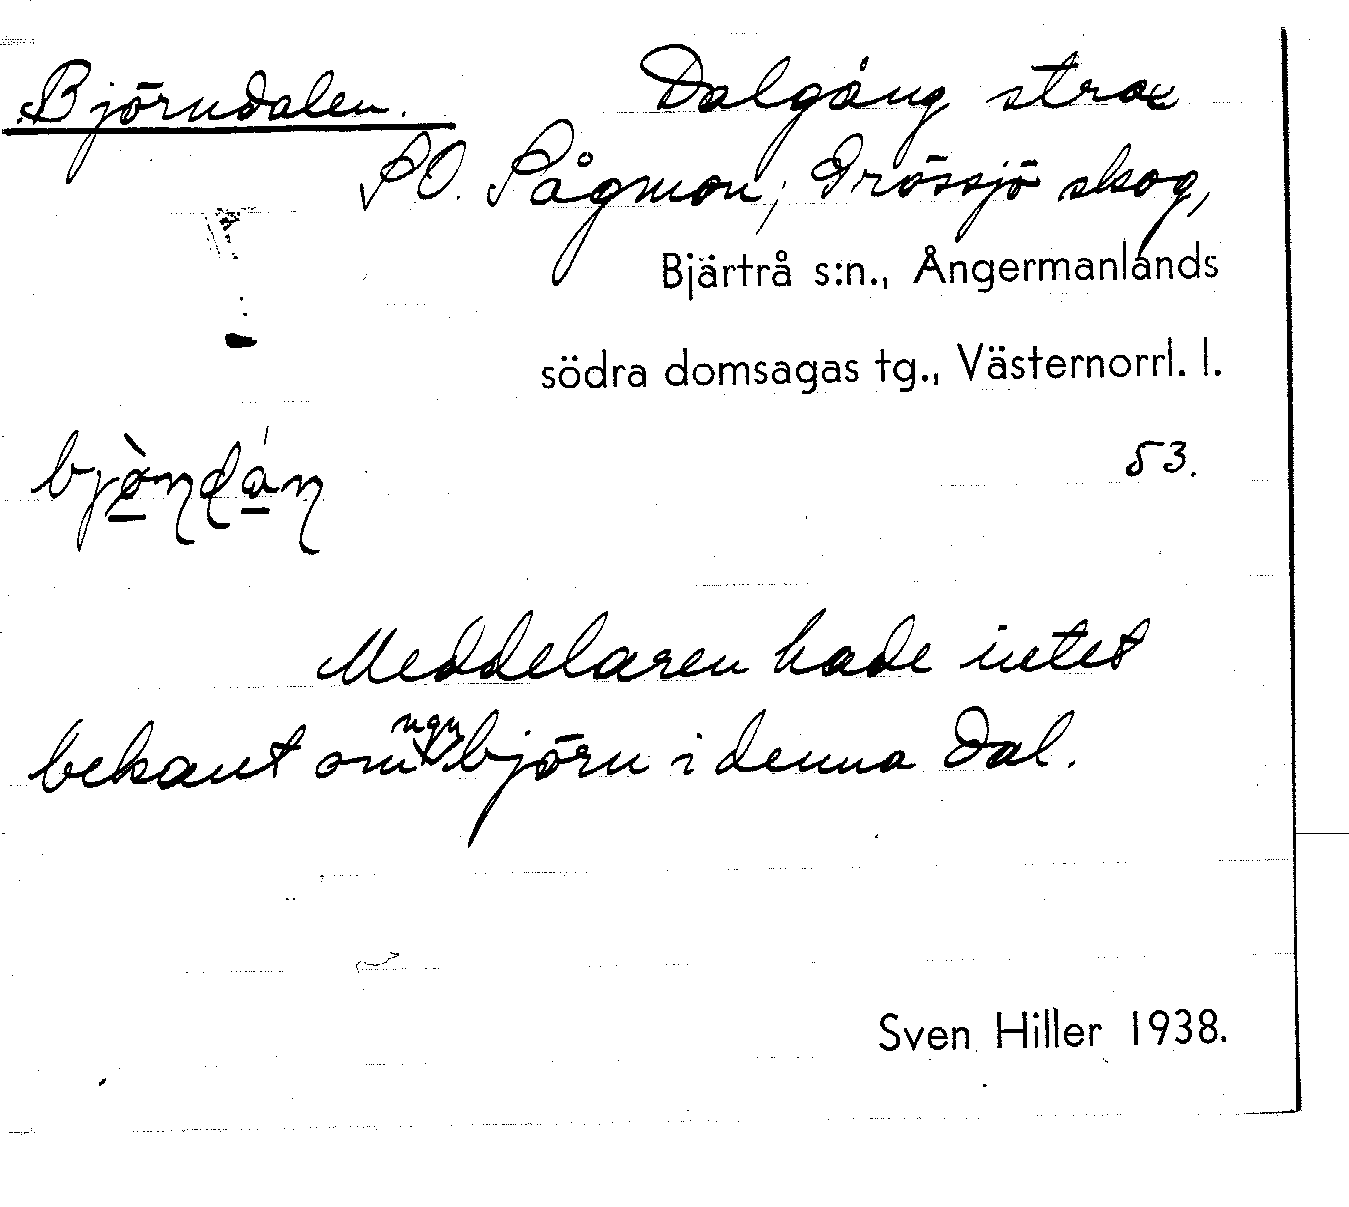 Björndalen. Dalgång strax
SO. Sågmon, Drössjö skog,
Bjärtrå s:n., Ångermanlands
södra domsagas tg., Västernorrl. l.
53.
Meddelaren hade intet
bekant om ngn björn i denna dal.
Sven Hiller 1938.